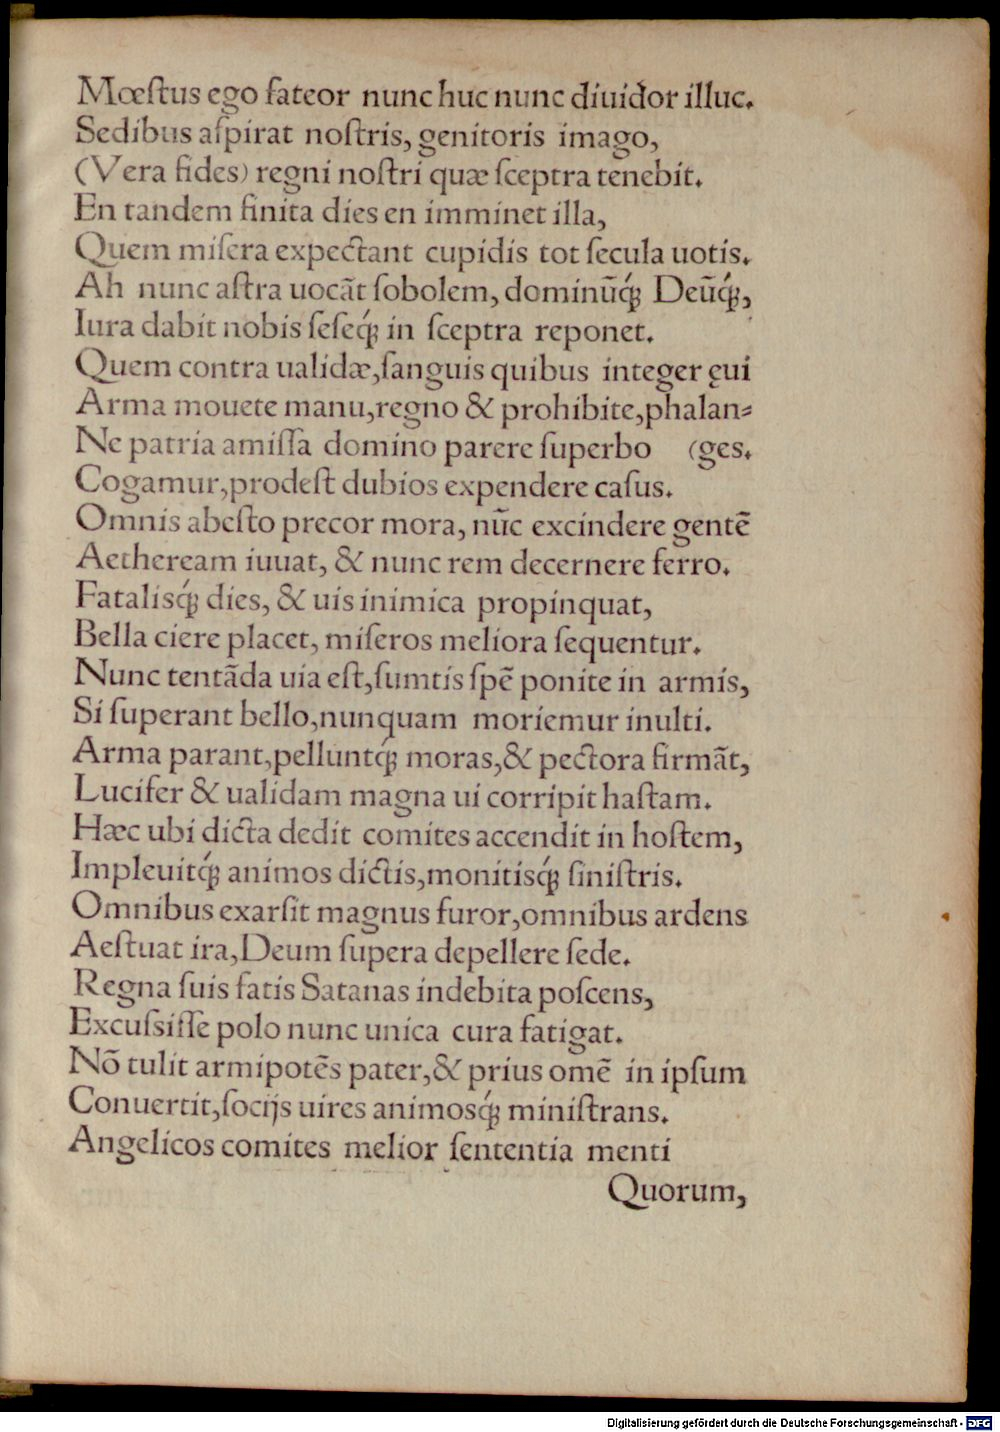 Mœſtus ego fateor nunc huc nunc diuidor illuc.
Sedibus aſpirat noſtris, genitoris imago,
(Vera fides) regni noſtri quæ ſceptra tenebit.
En tandem finita dies en imminet illa,
Quem miſera expectant cupidis tot ſecula uotis.
Ah nunc aſtra uocãt ſobolem, dominũq́; Deũq́;,
Iura dabit nobis ſeſeq́; in ſceptra reponet.
Quem contra ualidæ,ſanguis quibus integer ęui
Arma mouete manu,regno & prohibite,phalan⸗
Ne patria amiſſa domino parere ſuperbo (ges.
Cogamur,prodeſt dubios expendere caſus.
Omnis abeſto precor mora, nũc excindere gentẽ
Aetheream iuuat, & nunc rem decernere ferro.
Fatalisq́; dies, & uis inimica propinquat,
Bella ciere placet, miſeros meliora ſequentur.
Nunc tentãda uia eſt,ſumtis ſpẽ ponite in armis,
Si ſuperant bello,nunquam moriemur inulti.
Arma parant,pelluntq́; moras,& pectora firmãt,
Lucifer & ualidam magna ui corripit haſtam.
Hæc ubi dicta dedit comites accendit in hoſtem,
Impleuitq́; animos dictis,monitisq́; ſiniſtris.
Omnibus exarſit magnus furor,omnibus ardens
Aeſtuat ira,Deum ſupera depellere ſede.
Regna ſuis fatis Satanas indebita poſcens,
Excuſsiſſe polo nunc unica cura fatigat.
Nõ tulit armipotẽs pater,& prius omẽ in ipſum
Conuertit,ſocijs uires animosq́; miniſtrans.
Angelicos comites melior ſententia menti
Quorum,
Digitalisierung gefördert durch die Deutsche Forschungsgemeinschaft - DFG